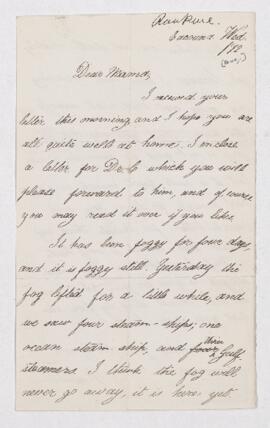 Wed.
Dear Mama,
I received your
letter this morning, and I hope you are
all quite well at home. I inclose
a letter for Dr. C which you will
please forward to him, and of course
you may read it over if you like.
It has been foggy for four days,
and it is foggy still. Yesterday the
fog lifted for a little while, and
we saw four steam-ships; one
ocean steam ship, and three Gulf
steamers. I think the fog will
never go away, it is here yet.